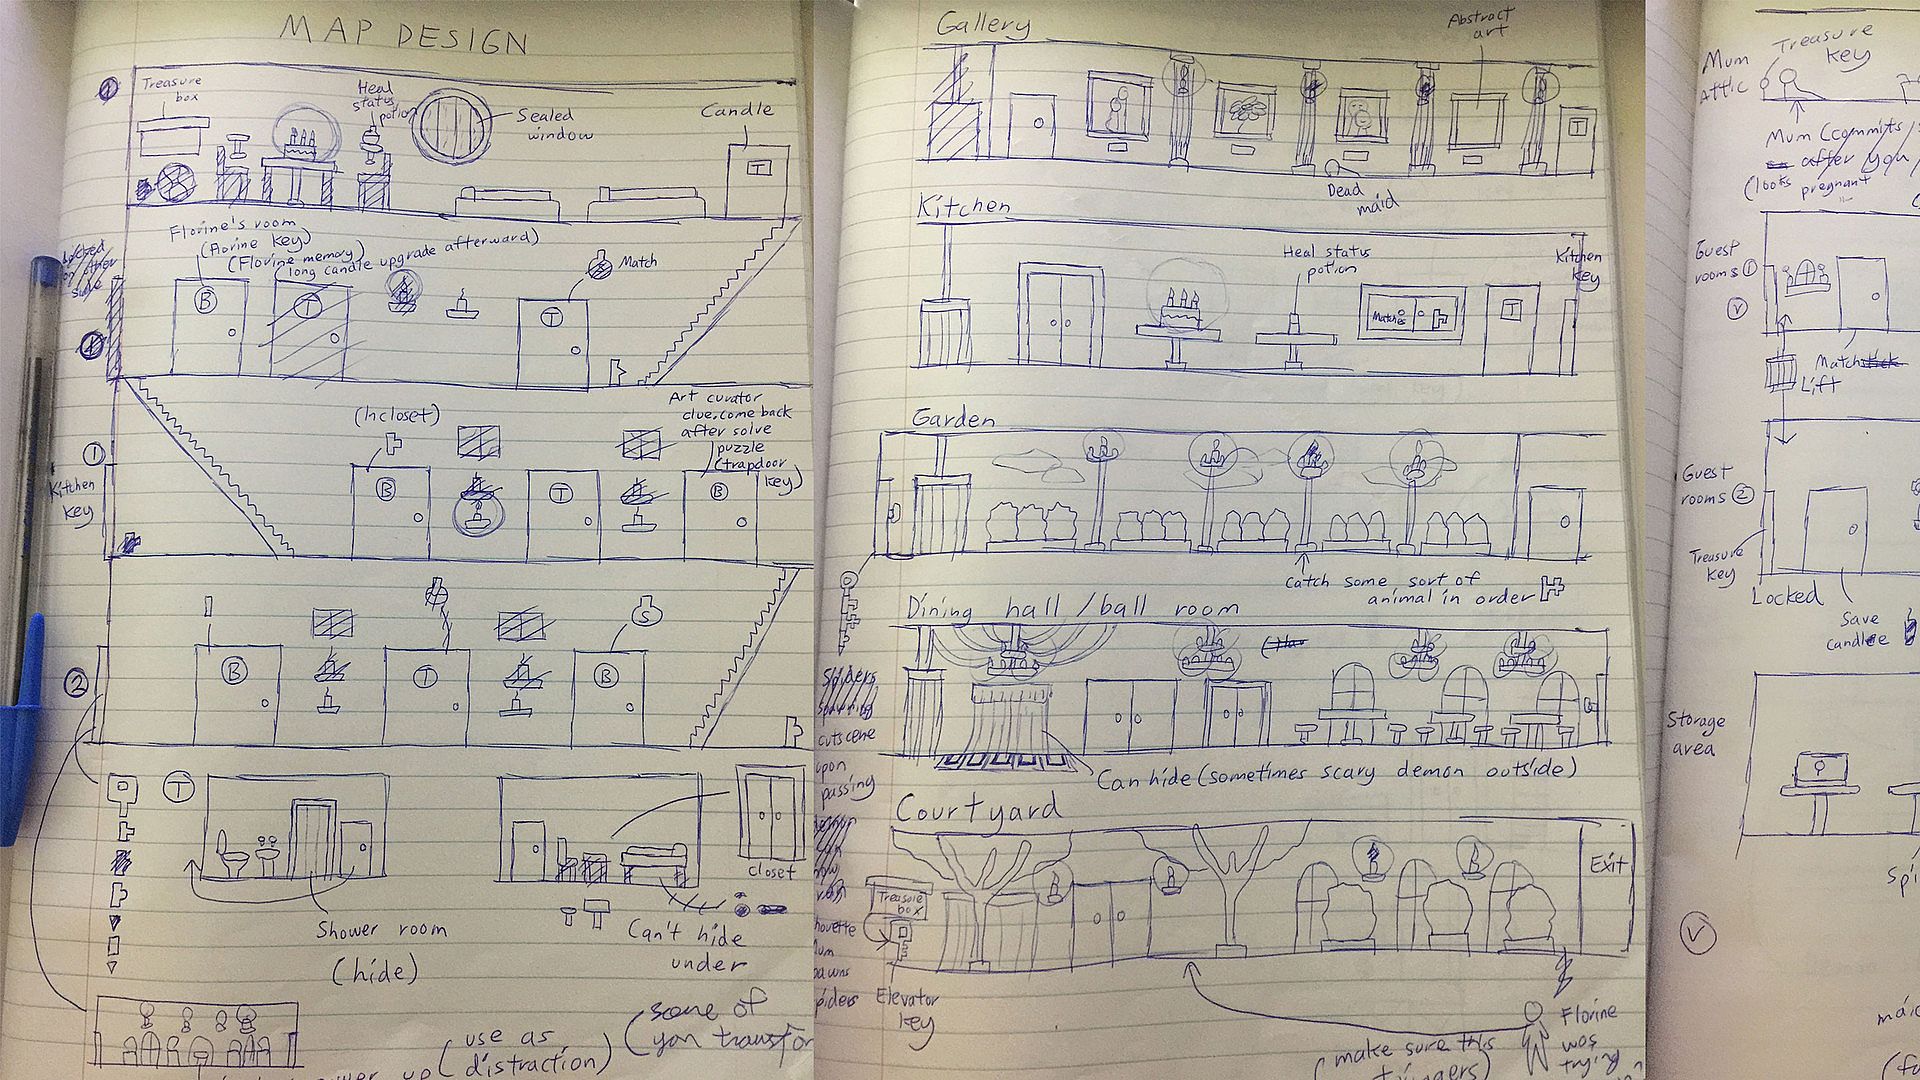 MAP DESIGN
Treasure
box
Heal
status
potion
Sealed
window
Candle
T
Florine's room
(florine key)
(Florine memory)
(long candle upgrade afterward)
Match
B
T
T
1
Kitchen
key
(In closet)
Art curator
clue, come back
after solve
puzzle
(trapdoor
key)
B
T
B
2
S
B
T
B
T
Shower room
(hide)
closet
Can't hide
under
use as
distraction)
(some of
you transfor
Gallery
Abstract
art
T
Dead
maid
Kitchen
Heal status
potion
Kitchen
key
Matches
T
Garden
Catch some sort of
animal in order
Dining hall / ball room
cutscene
upon
passing
Can hide (sometimes scary demon outside)
Courtyard
Exit
Treasure
box
Elevator
key
Florine
was
trying
(make sure this
triggers)
Mum
Attic
Treasure
key
Mum (commits
after you
(looks pregnant
Guest
rooms 1
V
Match
Lift
Guest
rooms 2
Treasure
key
Locked
Save
candle
Storage
area
V